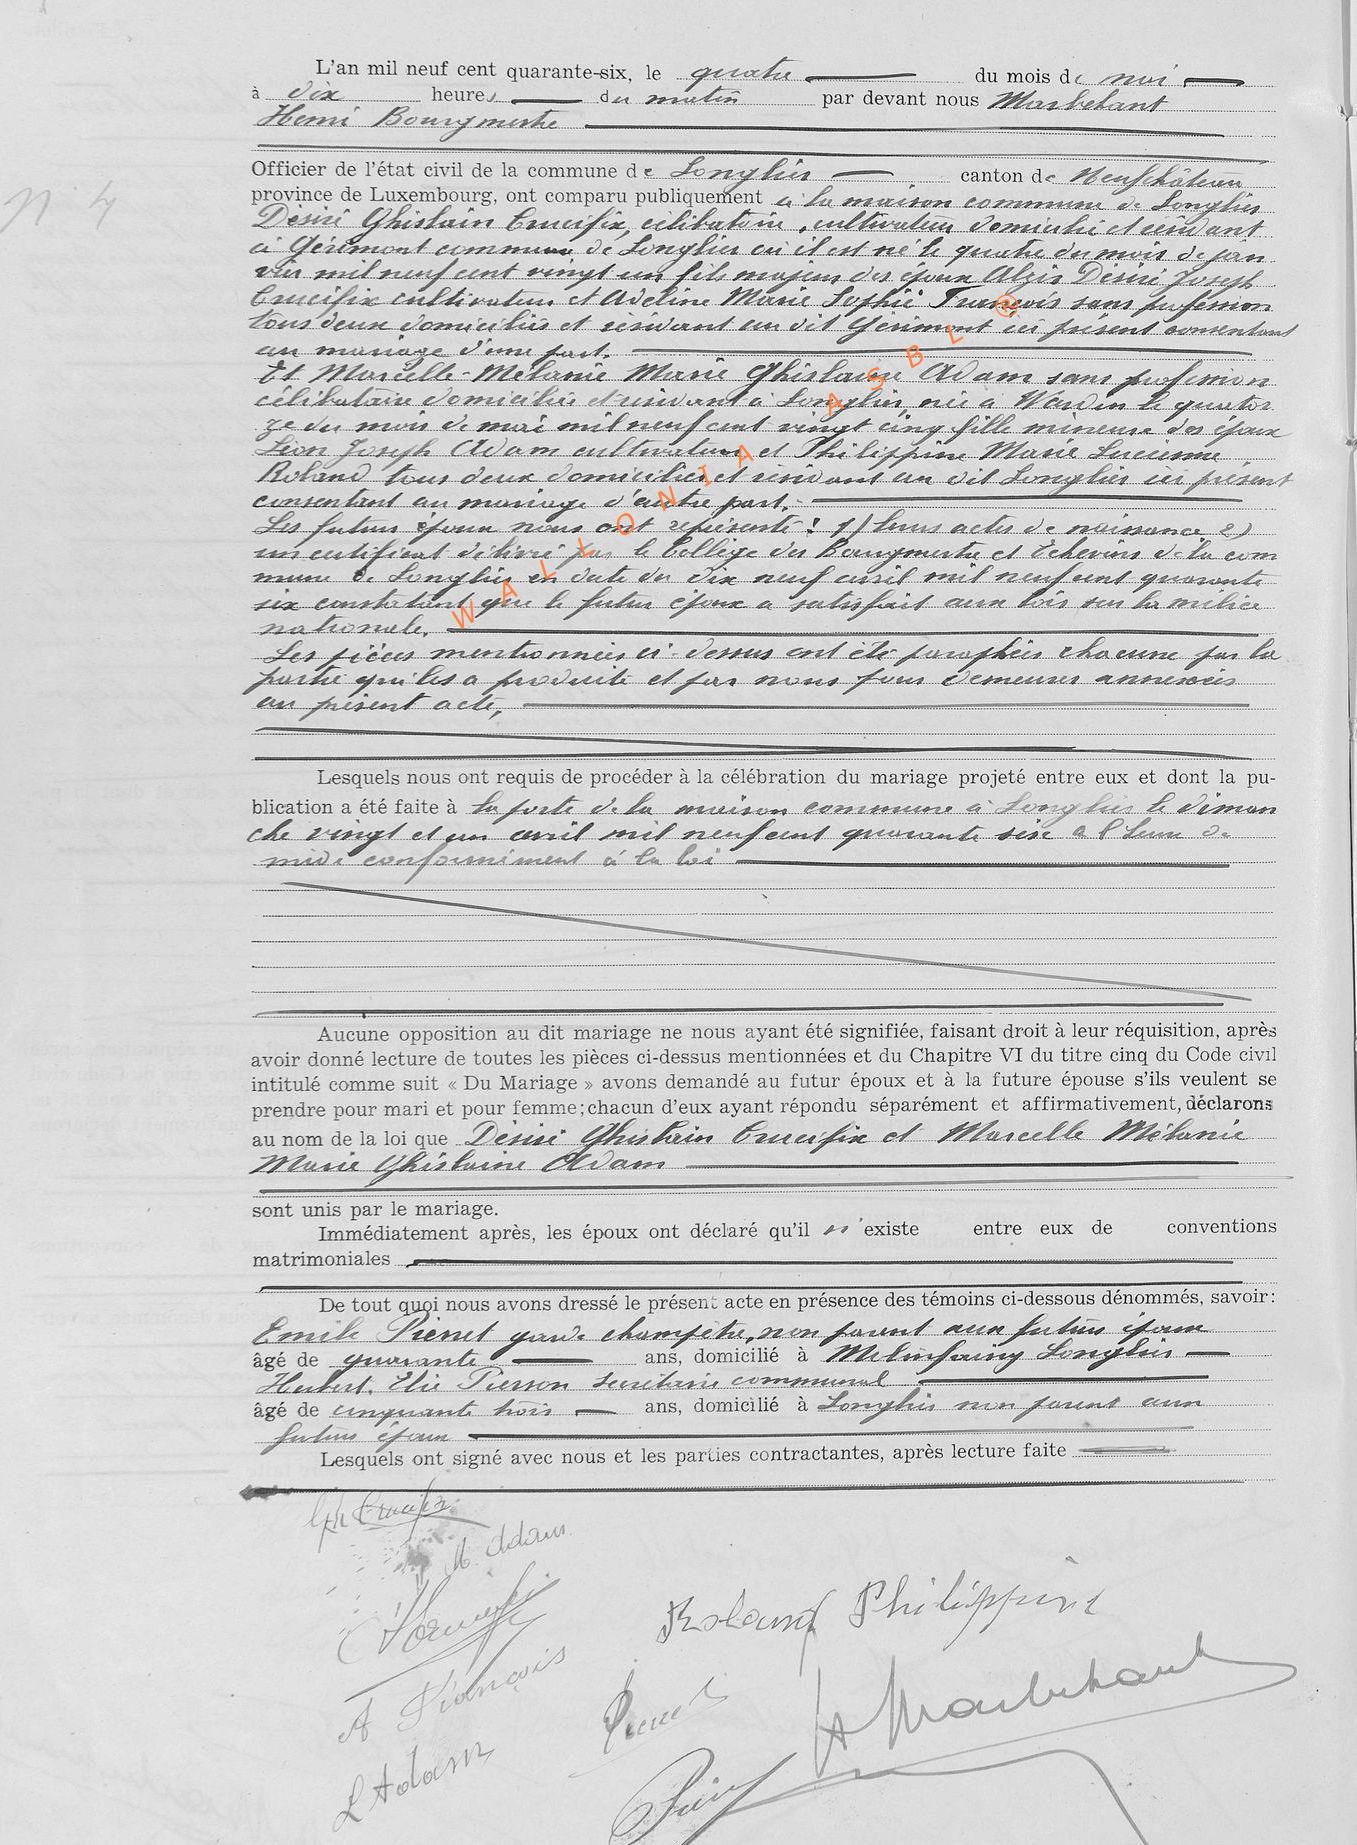 L'an mil neuf cent quarante-six, le quatre du mois de mai
à dix heures du matin par devant nous Marbehant
Henri Bourgmestre
Officier de l'état civil de la commune de Longlier canton de Neufchâteau
N. 4
province de Luxembourg, ont comparu publiquement à la maison commune de Longlier
Désiré Ghislain Crucifix, célibataire, cultivateur domicilié et résidant
à Gérimont commune de Longlier où il est né le quatre du mois de jan
vier mil neuf cent vingt un fils majeur des époux Alzir Désiré Joseph
Crucifix cultivateur et Adeline Marie Sophie François sans profession
tous deux domiciliés et résidant au dit Gérimont ici présent consentant
au mariage d'une part.
Et Marcelle-Mélanie Marie Ghislaine Adam sans profession
célibataire domiciliée et résidant à Longlier, née à Wardin le quator
ze du mois de mai mil neuf cent vingt cinq fille mineure des époux
Léon Joseph Adam cultivateur et Philippine Marie Lucienne
Roland tous deux domiciliés et résidant au dit Longlier ici présent
consentant au mariage d'autre part.
Les futurs époux nous ont représenté : 1) leurs actes de naissance 2)
un certificat délivré par le Collège des Bourgmestre et Echevins de la com
mune de Longlier en date du dix neuf avril mil neuf cent quarante
six constatant que le futur époux a satisfait aux lois sur la milice
nationale.
Les pièces mentionnées ci-dessus ont été paraphées chacune par la
partie qui les a produite et par nous pour demeurer annexées
au présent acte,
Lesquels nous ont requis de procéder à la célébration du mariage projeté entre eux et dont la pu-
blication a été faite à la porte de la maison commune à Longlier le diman
che vingt et un avril mil neuf cent quarante six à l'heure de
midi conformément à la loi
Aucune opposition au dit mariage ne nous ayant été signifiée, faisant droit à leur réquisition, après
avoir donné lecture de toutes les pièces ci-dessus mentionnées et du Chapitre VI du titre cinq du Code civil
intitulé comme suit « Du Mariage » avons demandé au futur époux et à la future épouse s'ils veulent se
prendre pour mari et pour femme; chacun d'eux ayant répondu séparément et affirmativement, déclarons
au nom de la loi que Désiré Ghislain Crucifix et Marcelle Mélanie
Marie Ghislaine Adam
sont unis par le mariage.
Immédiatement après, les époux ont déclaré qu'il n'existe entre eux de conventions
matrimoniales
De tout quoi nous avons dressé le présent acte en présence des témoins ci-dessous dénommés, savoir:
Emile Pierret garde champêtre, non parent aux futurs époux
âgé de quarante ans, domicilié à Molinfaing Longlier
Hubert Elie Pierson secrétaire communal
âgé de cinquante trois ans, domicilié à Longlier non parent aux
futurs époux
Lesquels ont signé avec nous et les parties contractantes, après lecture faite
Gh Crucifix
M. Adam
Roland Philippine
A François
Pierret
H Marbehant
L Adam
WALLONIA ASBL ®